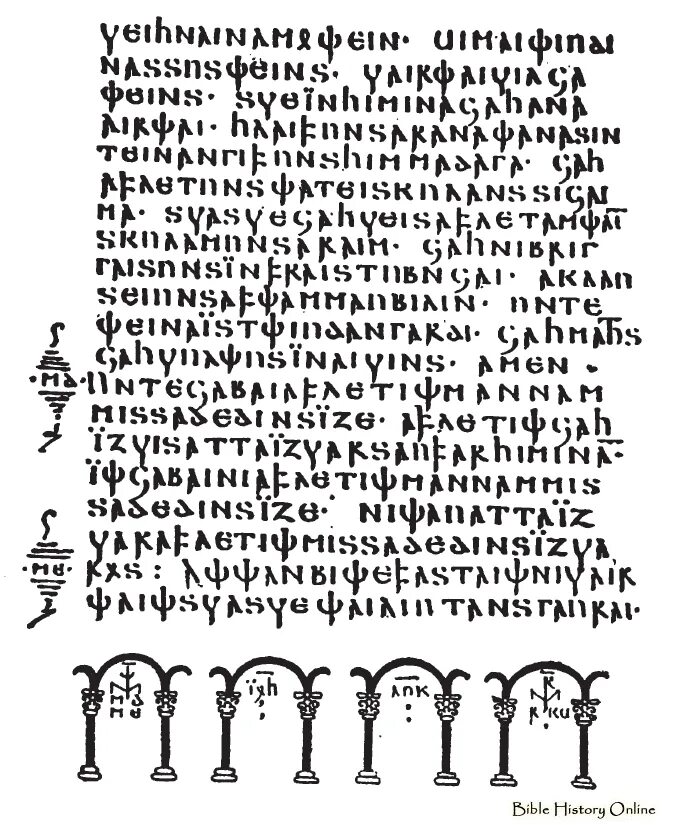 𐍅𐌴𐌹𐌷𐌽𐌰𐌹𐌽𐌰𐌼𐍉𐌸𐌴𐌹𐌽· 𐌵𐌹𐌼𐌰𐌹𐌸𐌹𐌿𐌳𐌹
𐌽𐌰𐍃𐍃𐌿𐍃𐌸𐌴𐌹𐌽𐍃· 𐍅𐌰𐌹𐍂𐌸𐌰𐌹𐍅𐌹𐌻𐌾𐌰
𐌸𐌴𐌹𐌽𐍃· 𐍃𐍅𐌴𐌹̈𐌽𐌷𐌹𐌼𐌹𐌽𐌰𐌾𐌰𐌷𐌰𐌽𐌰
𐌰𐌹𐍂𐌸𐌰𐌹· 𐌷𐌻𐌰𐌹𐍆𐌿𐌽𐍃𐌰𐍂𐌰𐌽𐌰𐌸𐌰𐌽𐌰𐍃𐌹𐌽
𐍄𐌴𐌹𐌽𐌰𐌽𐌲𐌹𐍆𐌿𐌽𐍃𐌷𐌹𐌼𐌼𐌰𐌳𐌰𐌲𐌰· 𐌾𐌰𐌷
𐌰𐍆𐌻𐌴𐍄𐌿𐌽𐍃𐌸𐌰𐍄𐌴𐌹𐍃𐌺𐌿𐌻𐌰𐌽𐍃𐍃𐌹𐌾𐌰𐌹
𐌼𐌰· 𐍃𐍅𐌰𐍃𐍅𐌴𐌾𐌰𐌷𐍅𐌴𐌹𐍃𐌰𐍆𐌻𐌴𐍄𐌰𐌼𐌸𐌰𐌹̅
𐍃𐌺𐌿𐌻𐌰𐌼𐌿𐌽𐍃𐌰𐍂𐌰𐌹𐌼· 𐌾𐌰𐌷𐌽𐌹𐌱𐍂𐌹𐌲
𐌲𐌰𐌹𐍃𐌿𐌽𐍃𐌹̈𐌽𐍆𐍂𐌰𐌹𐍃𐍄𐌿𐌱𐌽𐌾𐌰𐌹· 𐌰𐌺𐌻𐌰𐌿
𐍃𐌴𐌹𐌿𐌽𐍃𐌰𐍆𐌸𐌰𐌼𐌼𐌰𐌿𐌱𐌹𐌻𐌹𐌽· 𐌿𐌽𐍄𐌴
𐌸𐌴𐌹𐌽𐌰𐌹̈𐍃𐍄𐌸𐌹𐌿𐌳𐌰𐌽𐌲𐌰𐍂𐌳𐌹· 𐌾𐌰𐌷𐌼𐌰𐌷𐍄𐍃
𐌾𐌰𐌷𐍅𐌿𐌻𐌸𐌿𐍃𐌹̈𐌽𐌰𐌹𐍅𐌹𐌽𐍃· 𐌰𐌼𐌴𐌽·
·𐌼𐌳·
𐌿𐌽𐍄𐌴𐌾𐌰𐌱𐌰𐌹𐌰𐍆𐌻𐌴𐍄𐌹𐌸𐌼𐌰𐌽𐌽𐌰𐌼
𐌼𐌹𐍃𐍃𐌰𐌳𐌴𐌳𐌹𐌽𐍃𐌹̈𐌶𐌴· 𐌰𐍆𐌻𐌴𐍄𐌹𐌸𐌾𐌰𐌷
𐌹̈𐌶𐍅𐌹𐍃𐌰𐍄𐍄𐌰𐌹̈𐌶𐍅𐌰𐍂𐍃𐌰𐌿𐍆𐌰𐍂𐌷𐌹𐌼𐌹𐌽𐌰̅·
𐌹̈𐌸𐌾𐌰𐌱𐌰𐌹𐌽𐌹𐌰𐍆𐌻𐌴𐍄𐌹𐌸𐌼𐌰𐌽𐌽𐌰𐌼𐌼𐌹𐍃
𐍃𐌰𐌳𐌴𐌳𐌹𐌽𐍃𐌹̈𐌶𐌴· 𐌽𐌹𐌸𐌰𐌿𐌰𐍄𐍄𐌰𐌹̈𐌶
𐍅𐌰𐍂𐌰𐍆𐌻𐌴𐍄𐌹𐌸𐌼𐌹𐍃𐍃𐌰𐌳𐌴𐌳𐌹𐌽𐍃𐌹̈𐌶𐍅𐌰
·𐌼𐌴·
𐍂𐍉𐍃: 𐌰𐌸𐌸𐌰𐌽𐌱𐌹𐌸𐌴𐍆𐌰𐍃𐍄𐌰𐌹𐌸𐌽𐌹𐍅𐌰𐌹𐍂
𐌸𐌰𐌹𐌸𐍃𐍅𐌰𐍃𐍅𐌴𐌸𐌰𐌹𐌻𐌹𐌿𐍄𐌰𐌽𐍃𐌲𐌰𐌿𐍂𐌰𐌹·
𐌹̈𐍉𐌷
𐌻𐌿𐌺
Bible History Online